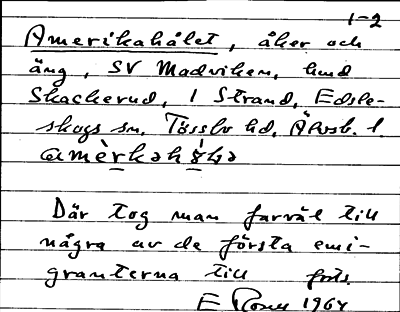 1-2
Amerikahålet, åker och
äng, SV Madviken, hmd
Skackerud, 1 Strand, Edsle-
skogs sn, Tössbo hd, Älvsb. l.
Där tog man farväl till
några av de första emi-
granterna till forts.
E 1964